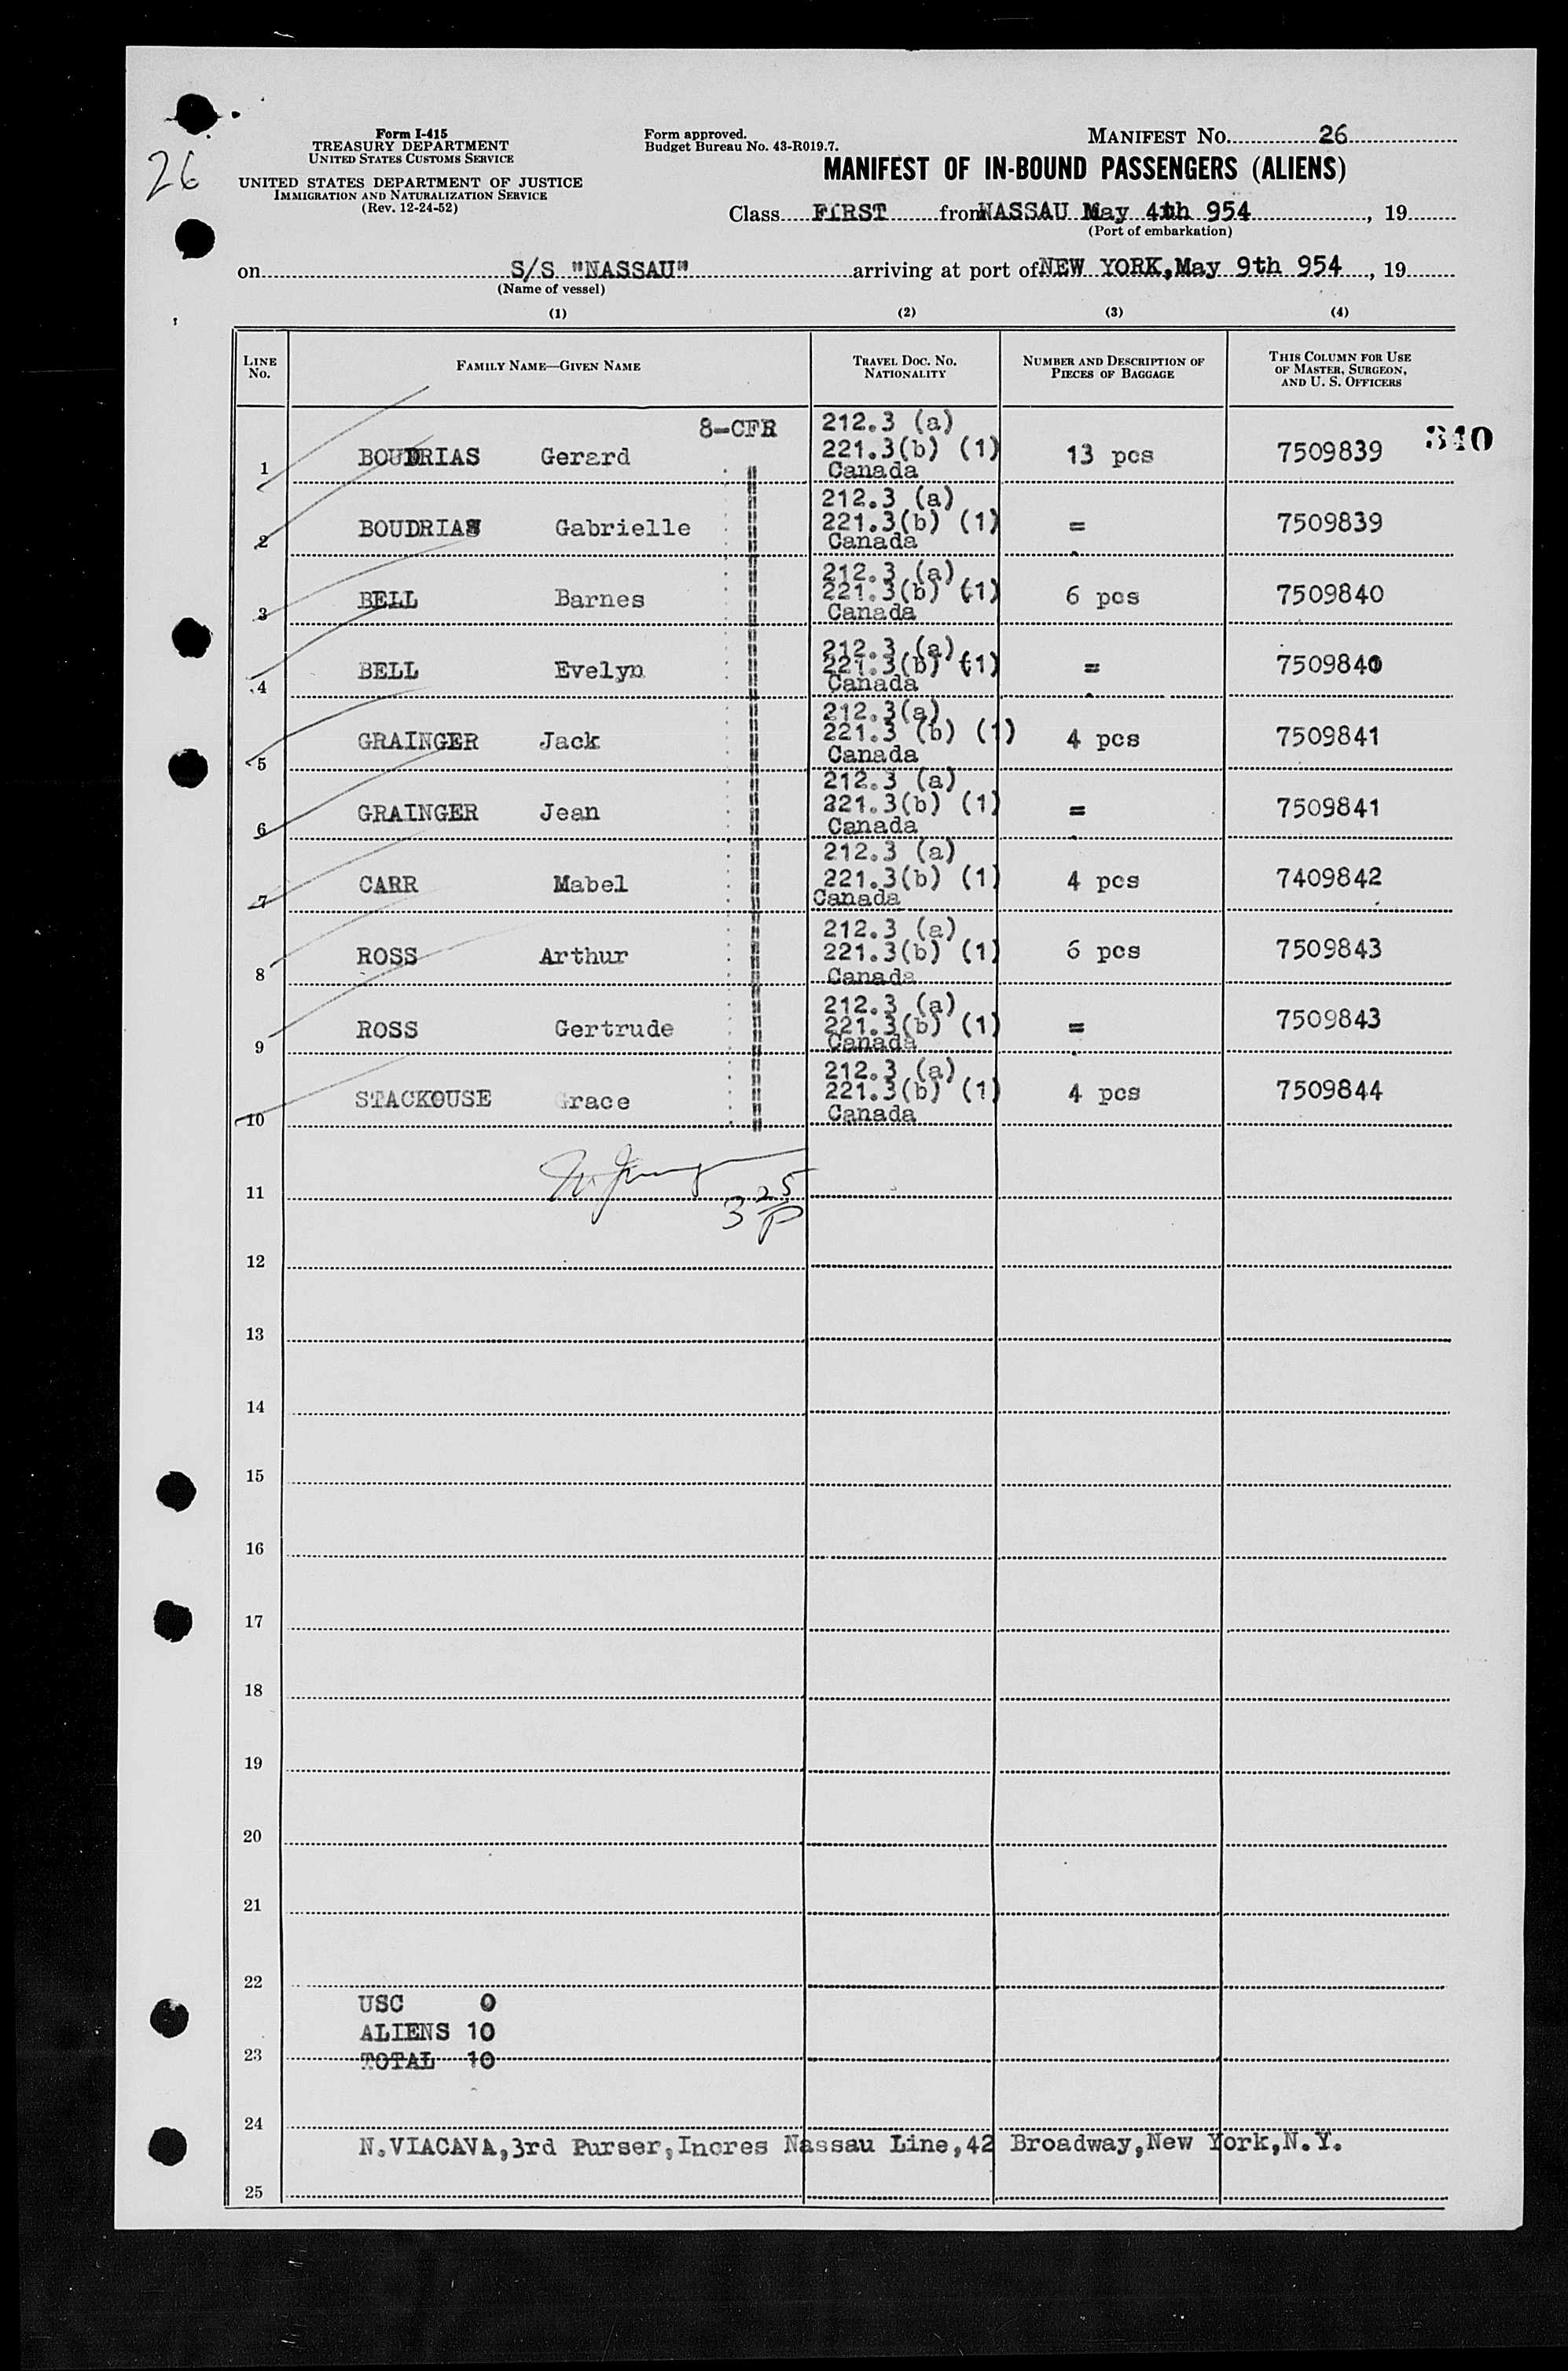 26
Form I-415
TREASURY DEPARTMENT
UNITED STATES CUSTOMS SERVICE
UNITED STATES DEPARTMENT OF JUSTICE
IMMIGRATION AND NATURALIZATION SERVICE
(Rev. 12-24-52)
Form approved.
Budget Bureau No. 43-R019.7.
MANIFEST NO. 26
MANIFEST OF IN-BOUND PASSENGERS (ALIENS)
Class FIRST from NASSAU May 4th 954, 19
(Port of embarkation)
on S/S "NASSAU" arriving at port of NEW YORK, May 9th 954, 19
(Name of vessel)
(1) (2) (3) (4)
LINE No. FAMILY NAME—GIVEN NAME TRAVEL DOC. NO. NATIONALITY NUMBER AND DESCRIPTION OF PIECES OF BAGGAGE THIS COLUMN FOR USE OF MASTER, SURGEON, AND U. S. OFFICERS
8-CFR 212.3 (a)
1 BOUDRIAS Gerard 221.3(b) (1) 13 pcs 7509839 340
Canada
212.3 (a)
2 BOUDRIAS Gabrielle " 221.3(b) (1) = 7509839
Canada
212.3 (a)
3 BELL Barnes " 221.3(b) (1) 6 pcs 7509840
Canada
212.3 (a)
4 BELL Evelyn " 221.3(b) (1) = 7509840
Canada
212.3(a)
5 GRAINGER Jack " 221.3 (b) (1) 4 pcs 7509841
Canada
212.3 (a)
6 GRAINGER Jean " 221.3(b) (1) = 7509841
Canada
212.3 (a)
7 CARR Mabel " 221.3(b) (1) 4 pcs 7409842
Canada
212.3 (a)
8 ROSS Arthur " 221.3(b) (1) 6 pcs 7509843
Canada
212.3 (a)
9 ROSS Gertrude " 221.3(b) (1) = 7509843
Canada
212.3 (a)
10 STACKOUSE Grace " 221.3(b) (1) 4 pcs 7509844
Canada
11
3 25 P
12
13
14
15
16
17
18
19
20
21
22
USC 0
ALIENS 10
23 TOTAL 10
24
N.VIACAVA,3rd Purser,Incres Nassau Line,42 Broadway,New York,N.Y.
25